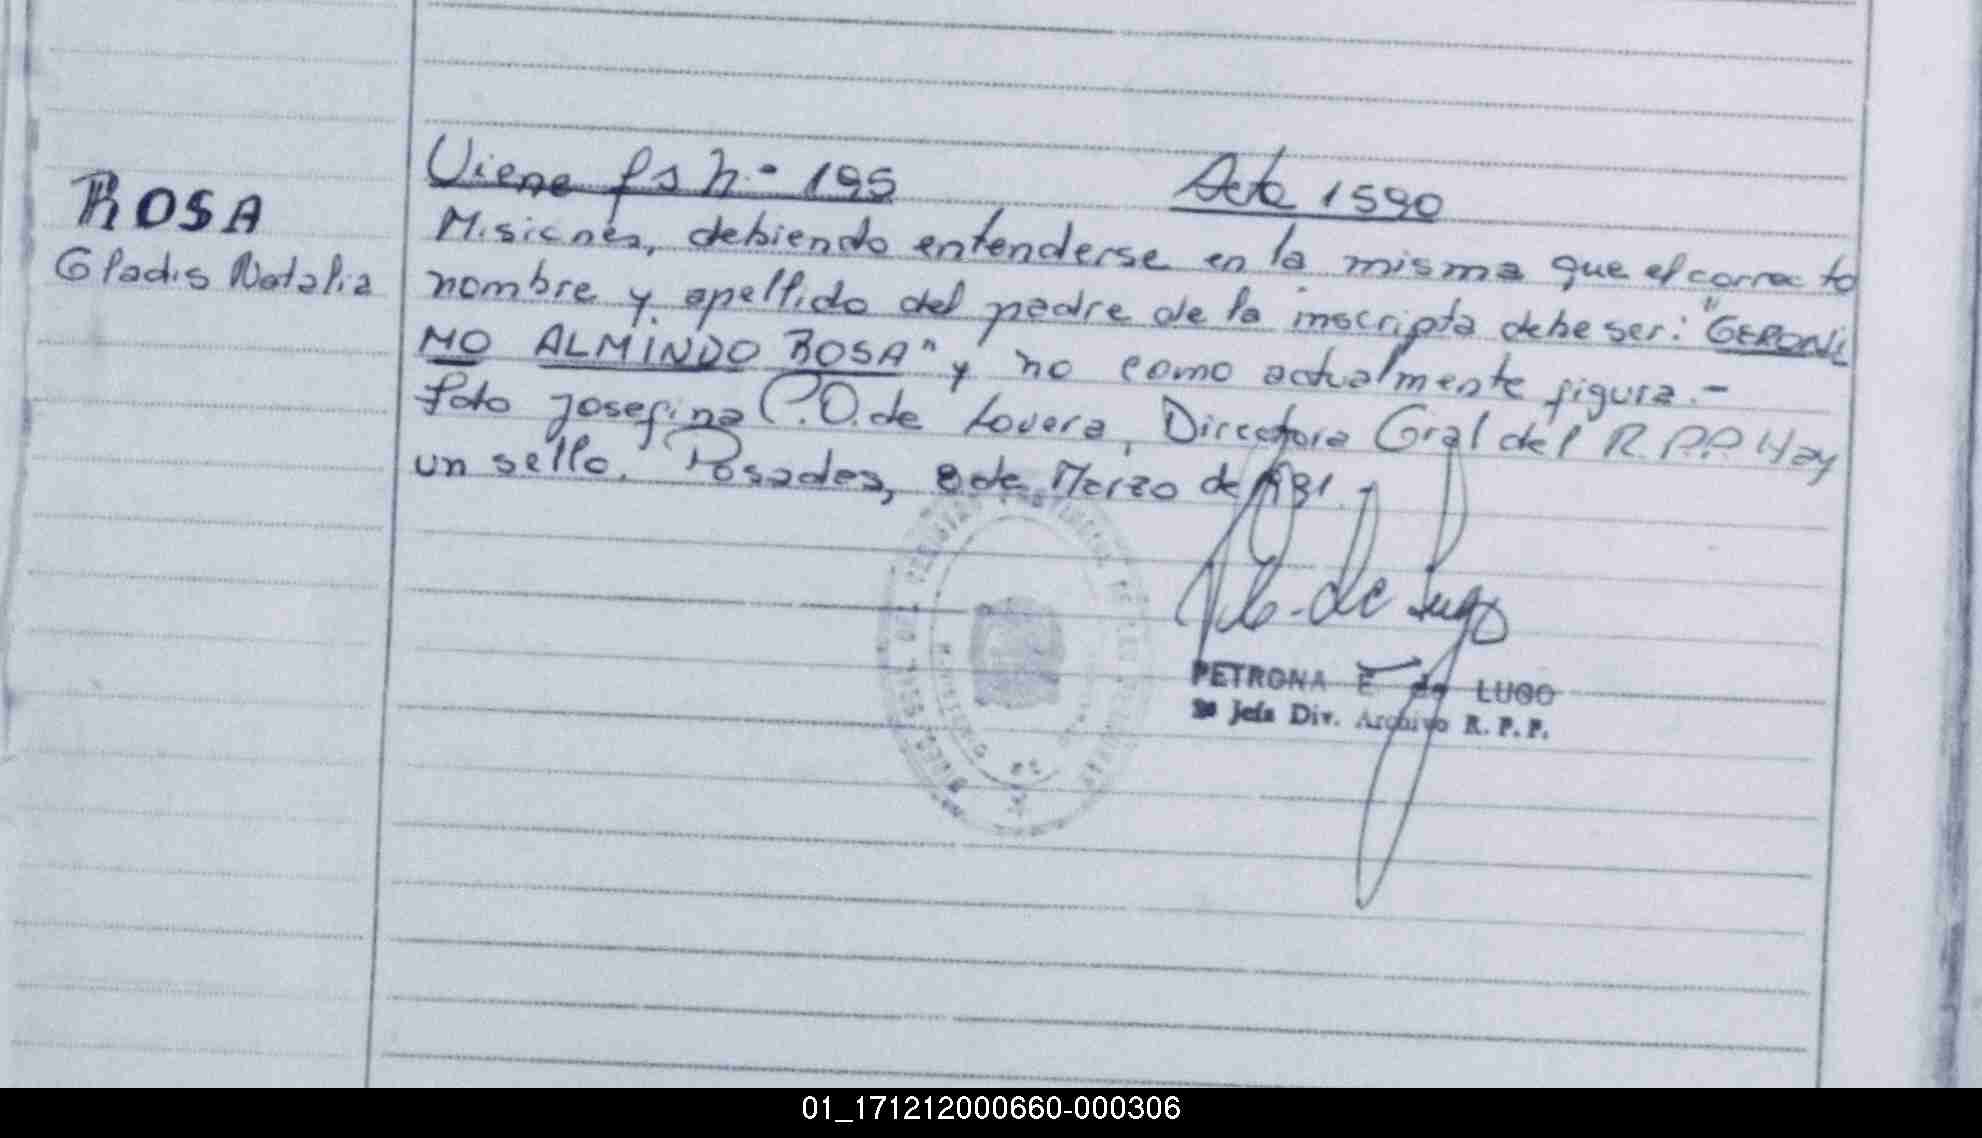 ROSA
Gladis Natalia
Viene fs n.- 195 Acta 1590
Misiones, debiendo entenderse en la misma que el correcto
nombre y apellido del padre de la inscripta debe ser: "GERONI
MO ALMINDO ROSA" y no como actualmente figura.-
fdo Josefina C.O. de Lovera, Directora Gral del R.P.P. Hay
un sello. Posadas, 8 de Marzo de 1981.-
de Lugo
PETRONA E de LUGO
Jefa Div. Archivo R. P. P.
01_171212000660-000306